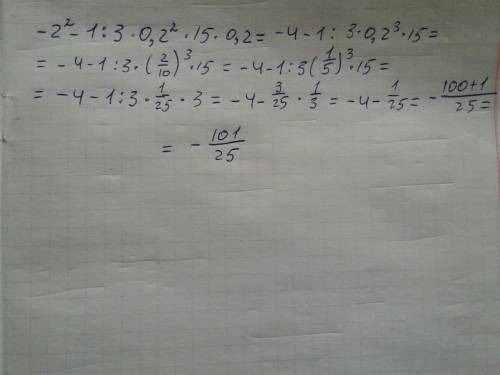 -2² - 1 : 3 · 0,2² · 15 · 0,2 = -4 - 1 : 3 · 0,2³ · 15 =
= -4 - 1 : 3 · (2/10)³ · 15 = -4 - 1 : 3 (1/5)³ · 15 =
= -4 - 1 : 3 · 1/25 · 3 = -4 - 3/25 · 1/3 = -4 - 1/25 = - (100+1)/25 =
= - 101/25